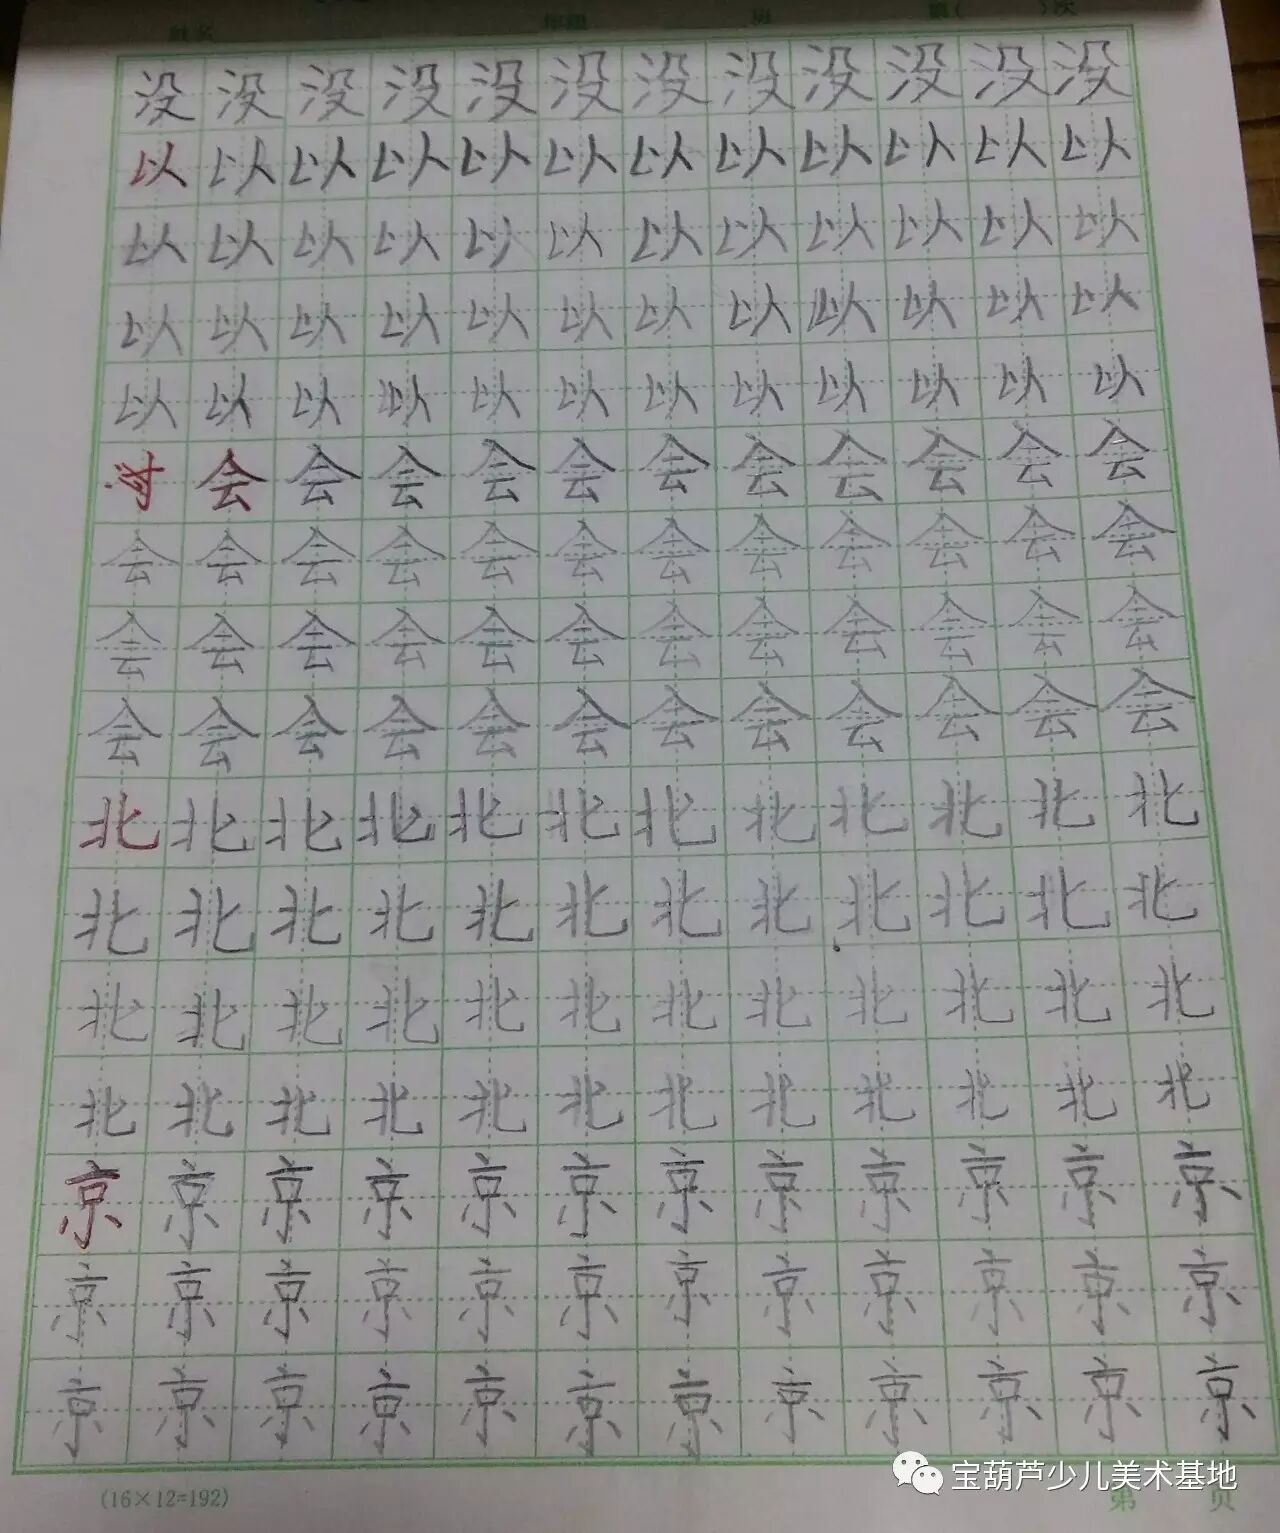 姓名 年级 班 第( )次
没没没没没没没没没没没没
以以以以以以以以以以以以
以以以以以以以以以以以以
以以以以以以以以以以以以
以以以以以以以以以以以以
会会会会会会会会会会会
会会会会会会会会会会会会
会会会会会会会会会会会会
会会会会会会会会会会会会
北北北北北北北北北北北北
北北北北北北北北北北北北
北北北北北北北北北北北北
北北北北北北北北北北北北
京京京京京京京京京京京京
京京京京京京京京京京京京
京京京京京京京京京京京京
宝葫芦少儿美术基地
(16×12=192) 第 页